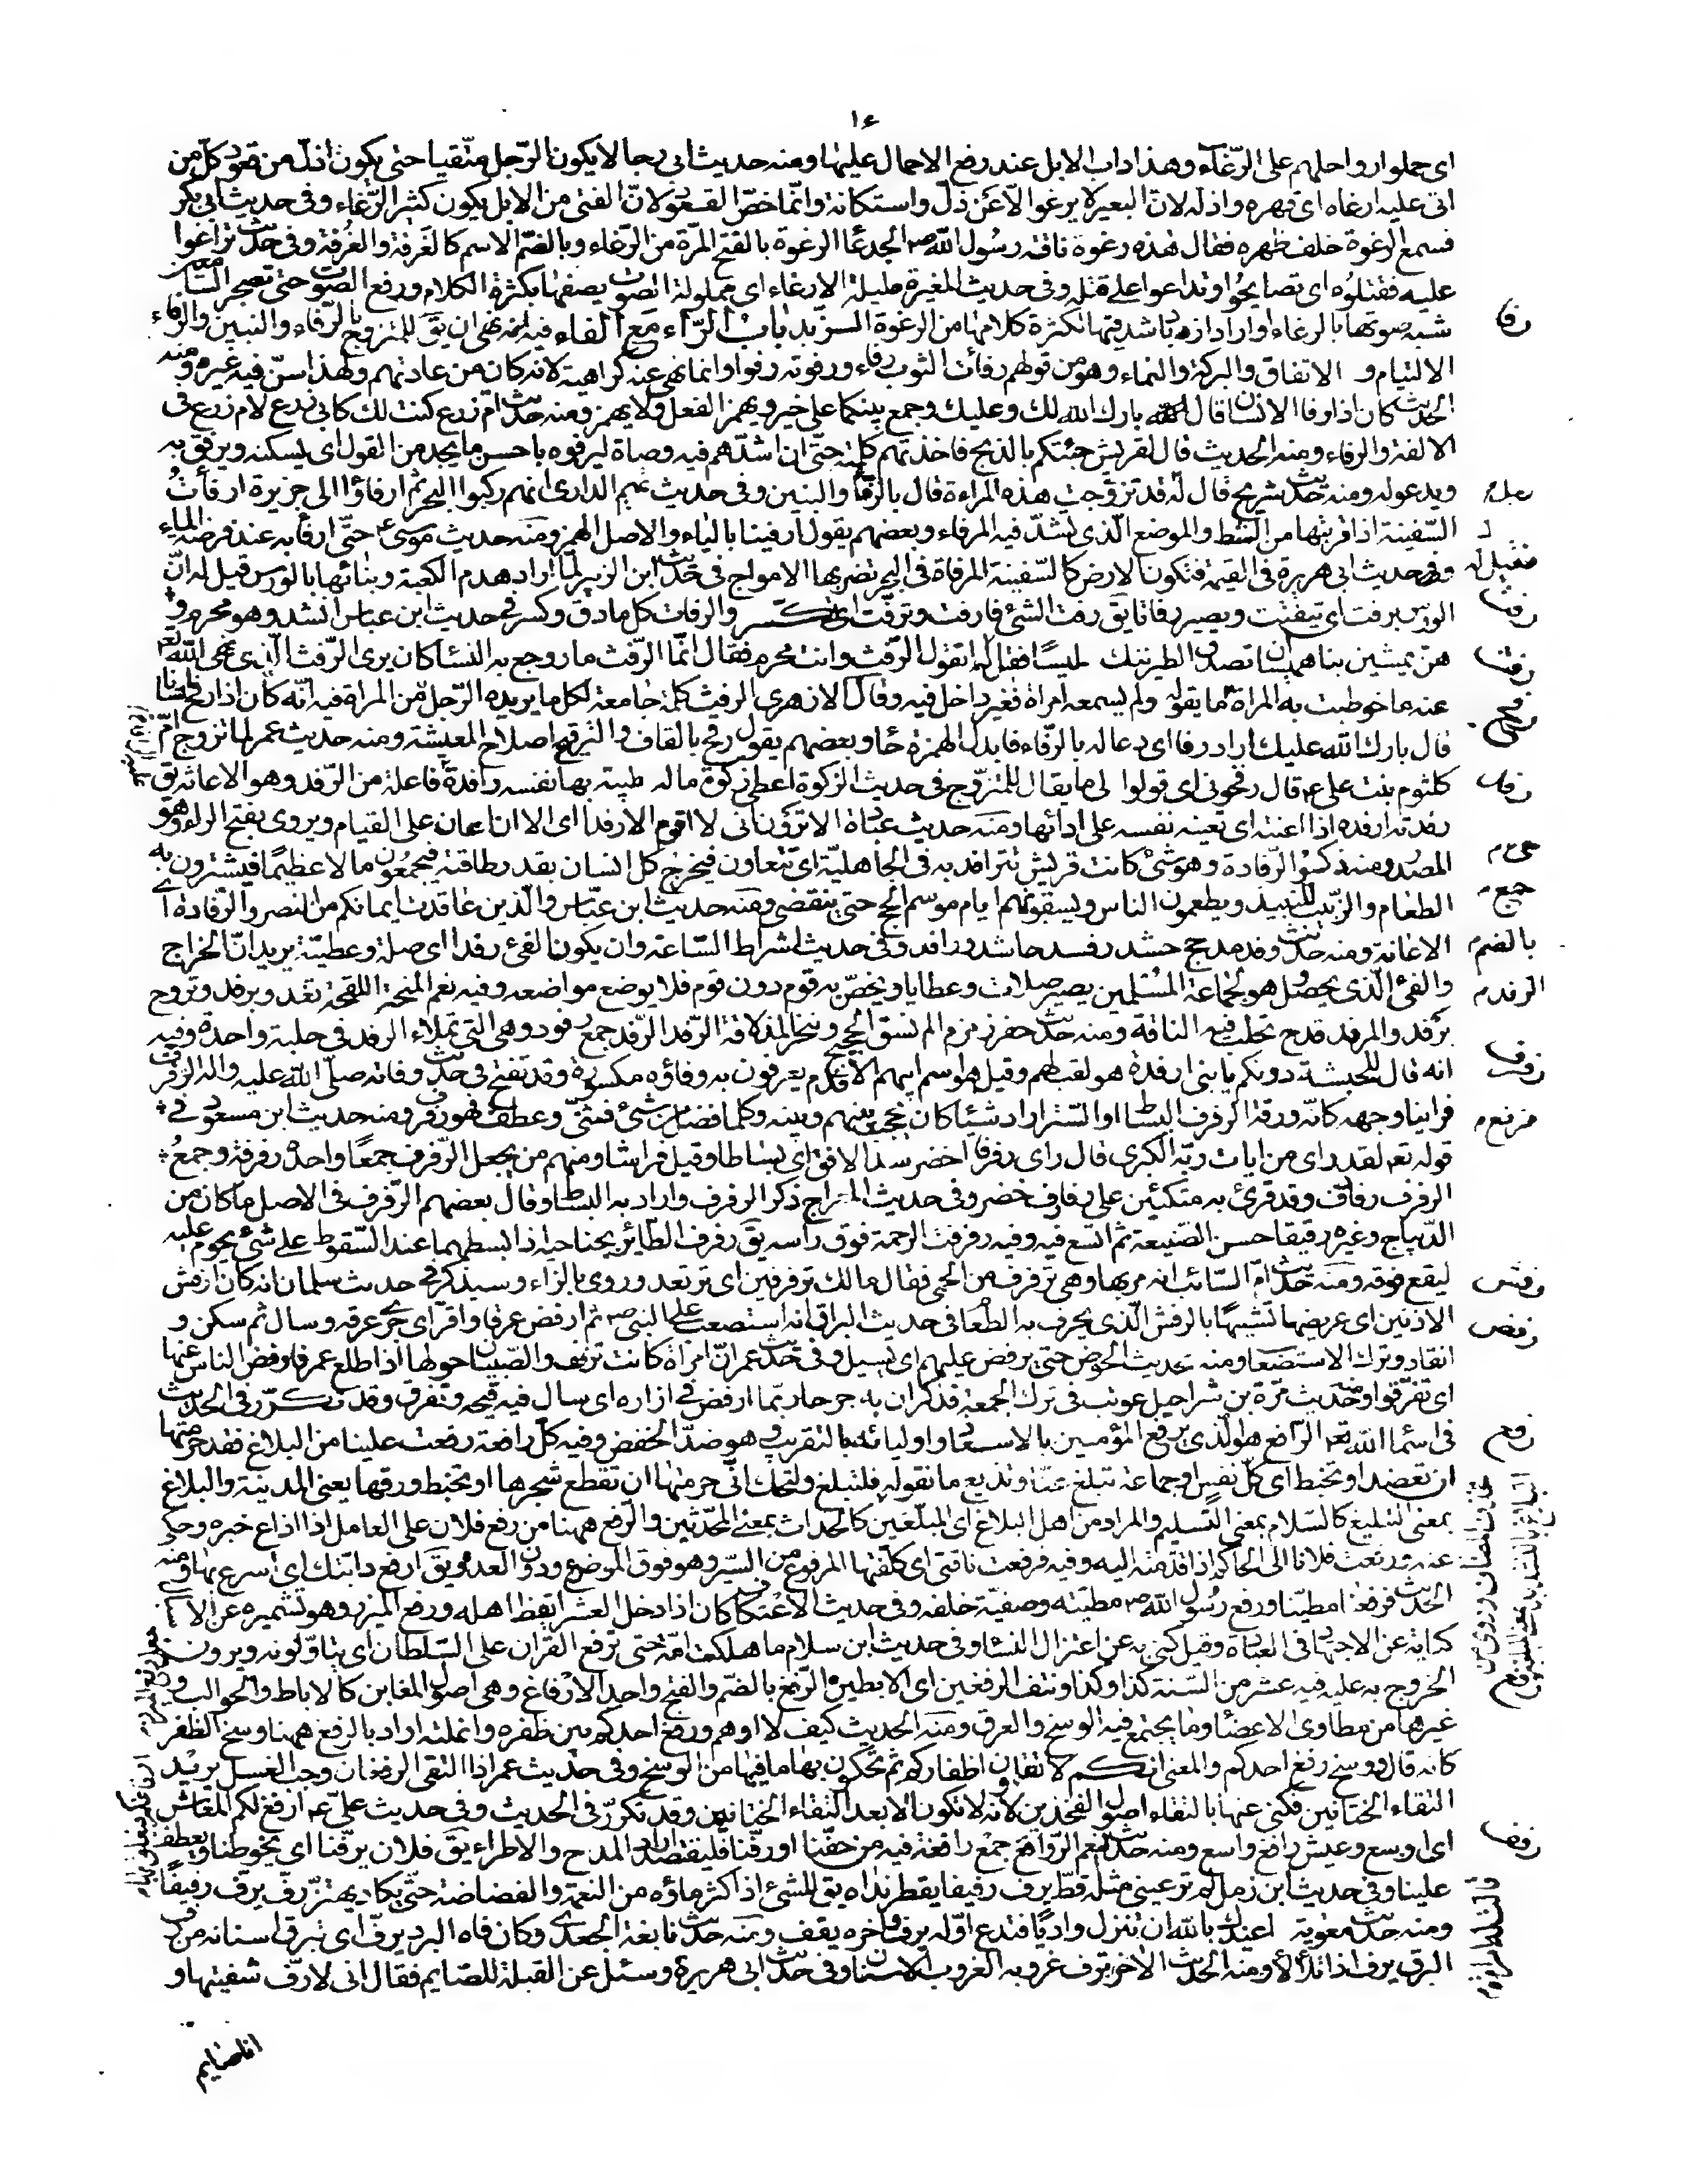 ١٤
اى حملوا رواحلهم على الرّغاء وهذا داب الابل عند رفع الاحمال عليها ومنه حديث ابى رجا لا يكون الرّجل متّقيا حتى يكون اذلّ من قعود كلّ من
اتى عليه ارغاه اى قهره واذله لانّ البعير لا يرغوا الّا عن ذلّ واستكانة وانّما خصّ القعود لانّ الفتى من الابل يكون كثير الرّغاء وفى حديث ابى بكر
فسمع الرغوة خلف ظهره فقال هذه رغوة ناقة رسول الله ص الجدعا الرغوة بالفتح المرّة من الرّغاء وبالضّم الاسم كالغَرفة والغُرفة وفى حديث تراغوا
عليه فقتلوه اى تصايحوا وتداعوا على قتله وفى حديث المغيرة مليلة الارغاء اى مملولة الصّوت يصفها بكثرة الكلام ورفع الصّوت حتى تضجر السّامعين
شبه صوتها بالرغاء او اراد ازباد شدقيها لكثرة كلامها من الرغوة الزبد باب الرّاء مع الفاء فيه انه نهى ان يقَ للمتزوج بالرّفاء والبنين والرّفاء
الالتيام و الاتفاق والبركة والنماء وهو من قولهم رفأت الثوب رفاء ورفوته رفوا وانما نهى عنه كراهية لانه كان من عادتهم ولهذا سنّ فيه غيره ومنه
الحديث كان اذا رفا الانسان قال بارك الله لك وعليك وجمع بينكما على خير ويهمز الفعل ولا يهمز ومنه حديث امّ زرع كنت لك كابى زرع لام زرع فى
الالفة والرفاء ومنه الحديث قال لقريش جئتكم بالذبح فاخذتهم كلمته حتّى انّ اشدّهم فيه وصاة ليرفوه باحسن ما يجد من القول اى يسكنه ويرفق به
ويدعو له ومنه حديث شريح قال له قد تزوّجت هذه المراءة قال بالرّفاء والبنين وفى حديث تميم الدارى انهم ركبوا البحر ثم ارفاؤا الى جزيرة ارفأتُ
السّفينة اذا قربتها من الشط والموضع الّذى تشدّ فيه المرفاء وبعضهم يقول ارفينا بالياء والاصل الهمز ومنه حديث موسى ع حتّى ارفأ به عند فرضة الماء
وفى حديث ابى هريرة فى القيمة فتكون الارض كالسّفينة المرفاة فى البحر تضربها الامواج فى حديث ابن الزبير لمّا اراد هدم الكعبة وبنائها بالورس قيل له انّ
الورس يرفت اى يتفتّت ويصير رفاتا يقَ رفت الشئ فارفت وترفّت اى تكسّر والرفات كل ما دق وكسر فى حديث ابن عباس انشد وهو محرم و
هنّ يمشين بنا هميسا ان تصدق الطير ننك لميسًا فقيل له اتقول الرّفث وانت محرم فقال انّما الرّفث ما روجع به النّسا كان يرى الرّفث الّذى نهى الله تع
عنه ما خوطبت به المراة فاما يقوله ولم يسمعه امراة فغير داخل فيه وقال الازهرى الرفث كلمة جامعة لكل ما يريده الرّجل من المراة فيه انّه كان اذا رفّح انسانا
قال بارك الله عليك اراد رفا اى دعا له بالرّفاء فابدل الهمزة حا وبعضهم يقول رقح بالقاف والترقيح اصلاح المعيشة ومنه حديث عمر لما تزوج امّ
كلثوم بنت على ع قال رفّحونى اى قولوا لى ما يقال للمتزوّج فى حديث الزكوة اعطى زكوة ماله طيبة بها نفسه رافدة فاعلة من الرّفد وهو الاعانة يق
رفدته ارفده اذا اعنته اى تعينه نفسه على ادائها ومنه حديث عبادة الا ترون انى لا اقوم الا رفدا اى الا ان اعان على القيام ويروى بفتح الراء وهو
المصدر ومنه ذكر الرّفادة وهو شئ كانت قريش تترافد به فى الجاهليّة اى تتعاون فيخرج كل انسان بقدر طاقته فيجمعون مالا عظيمًا فيشترون به
الطعام والزّبيب للنبيذ ويطعمون الناس ويسقونهم ايام موسم الحج حتى ينقضى ومنه حديث ابن عبّاس والّذين عاقدت ايمانكم من النصر والرّفادة اى
الاعانة ومنه حديث وفد مذحج حشد رفد حاشد ورافد وفى حديث اشراط السّاعة وان يكون الفئ رفدا اى صلة وعطيّة يريد انّ الخراج
والفئ الّذى يحصل هو لجماعة المسلمين يصير صلات وعطايا ويخصّ به قوم دون قوم فلا يوضع مواضعه وفيه نعم المنحة اللقحة تغد وبرفد وتروح
برَفد والمرفد قدح تحلب فيه الناقة ومنه حديث حفر زمزم الم نسق الحجيج وننحر المذلاقة الرّفد الرّفد جمع رفود وهى التى تملاء الرفد فى حلبة واحدة وفيه
انه قال للحبشة دونكم يا بنى ارفدة هو لقب لهم وقيل هو اسم ابيهم الاقدم يعرفون به وفاؤه مكسورة وقد تفتح فى حديث وفاته صلّى الله عليه واله الرّفرف
فراينا وجهه كانّه ورقة الرفرف البساط او السّتر اراد شيئا كان يحجب بينهم وبينه وكلما فضل من شئ فثنّى وعطف فهو رفرف ومنه حديث ابن مسعود فى
قوله تع لقد راى من ايات ربّه الكبرى قال راى رفرفا اخضر سدّ الافق اى بساطا وقيل فراشا ومنهم من يجعل الرّفرف جمعًا واحده رفرفة وجمع
الرفرف رفارف وقد قرئ به متكئين على رفارف خضر وفى حديث المعراج ذكر الرفرف واراد به البساط وقال بعضهم الرّفرف فى الاصل ما كان من
الدّيباج وغيره رقيقا حسن الصّنيعة ثم اتّسع فيه وفيه رفرفت الرحمة فوق راسه يقَ رفرف الطّائر بجناحيه اذا بسطهما عند السّقوط على شئ يحوم عليه
ليقع فوقه ومنه حديث امّ السّائب انه مر بها وهى ترفرف من الحمى فقال مالك ترفرفين اى ترتعد وروى بالزاء وسيذكر فى حديث سلمان انه كان ارفش
الاذنين اى عريضها تشبيهًا بالرفش الّذى يجرف به الطّعام فى حديث البراق انه استصعب على النبى ص ثم ارفض عرقا واقرّ اى جرى عرقه وسال ثم سكن و
انقاد وترك الاستصعاب ومنه حديث الحوض حتى يرفض عليهم اى يسيل وفى حديث عمر انّ امراة كانت تزفن والصّبيان حولها اذا طلع عمر فارفض الناس عنها
اى تفرّقوا ومنه حديث مرّة بن شراحيل عوتب فى ترك الجمعة فذكر ان به جرحا ربّما ارفض فى ازاره اى سال فيه قيحه وتفرق وقد تكرّر فى الحديث
فى اسما الله تع الرّافع هو الّذى يرفع المؤمنين بالاسعاد واوليائه بالتقريب وهو ضدّ الخفض وفيه كلّ رافعة رفعت علينا من البلاغ فقد حرمتها
ان تعضد او تخبط اى كلّ نفس او جماعة تبلغ عنّا وتذيع ما نقوله فلتبلغ ولتحك انّى حرمتها ان تقطع شجرها او تخبط ورقها يعنى المدينة والبلاغ
بمعنى التبليغ كالسّلام بمعنى التسليم والمراد من اهل البلاغ اى المبلّغين كالحدّاث بمعنى المحدّثين والرّفع ههنا من رفع فلان على العامل اذا اذاع خبره وحكى
عنه ورفعت فلانا الى الحاكم اذا قدمته اليه وفيه فرفعت ناقتى اى كلّفتها المرفوع من السّير وهو فوق الموضوع ودون العدو ويقَ ارفع دابّتك اى اسرع بها ومنه
الحديث فرفعنا مطيّنا ورفع رسول الله ص مطيّته وصفيّة خلفه وفى حديث الاعتكاف كان اذا دخل العشر ايقظ اهله ورفع الميزر وهو تشميره عن الاسبال
كناية عن الاجتهاد فى العبادة وقيل كنى به عن اعتزال النسا وفى حديث ابن سلام ما هلكت امّة حتى ترفع القران على السّلطان اى يتاوّلونه ويرون
الخروج به عليه فيه عشر من السّنة كذا وكذا ونتف الرفغين اى الابطين الرّفغ بالضّم والفتح واحد الارْفاغ وهى اصول المغابن كالاباط والحوالب و
غيرها من مطاوى الاعضا وما يجتمع فيه الوسخ والعرق ومنه الحديث كيف لا اوهم ورفغ احدكم بين ظفره وانملته اراد بالرفغ ههنا وسخ الظفر
كانه قال ووسخ رفغ احدكم والمعنى انكم لا تقلمون اظفاركم ثم تحكون بها ما فيها من الوسخ وفى حديث عمر اذا التقى الرفغان وجب الغسل يريد
التقاء الختانين فكنى عنها بالتقاء اصول الفخذين لانه لا تكون الا بعد التقاء الختانين وقد تكرّر فى الحديث وفى حديث علىّ ع ارفغ لكم المعاش
اى اوسع وعيش رافغ واسع ومنه حديث النعم الرّوافغ جمع رافغة فيه من حفّنا او رفّنا فليقتصد اراد المدح والاطراء يقَ فلان يرفّنا اى يحوطنا ويعطف
علينا وفى حديث ابن زمل لم تر عينى مثله قطّ يرف رفيفا يقطر نداه يق للشئ اذا كثر ماؤه من النعمة والغضاضة حتّى يكاد يهتزّ رفّ يرفّ رفيفًا
ومنه حديث معوية اعيذك بالله ان تنزل واديًا فتدع اوّله يرف واخره يقف ومنه حديث نابغة الجعدى وكان فاه البرد يرفّ اى تبرق اسنانه من رف
البرق يرف اذا تلألأ ومنه الحديث الاخر ترف غروبه الغروب الاسنان وفى حديث ابى هريرة وسئل عن القبلة للصّايم فقال انى لارفّ شفتيها و
انا صايم
رفا
رفت
رفث
رفح
رفد
بالضم م
الرفد م
رفرف
رفش
رفض
رفع
رفغ
رفف